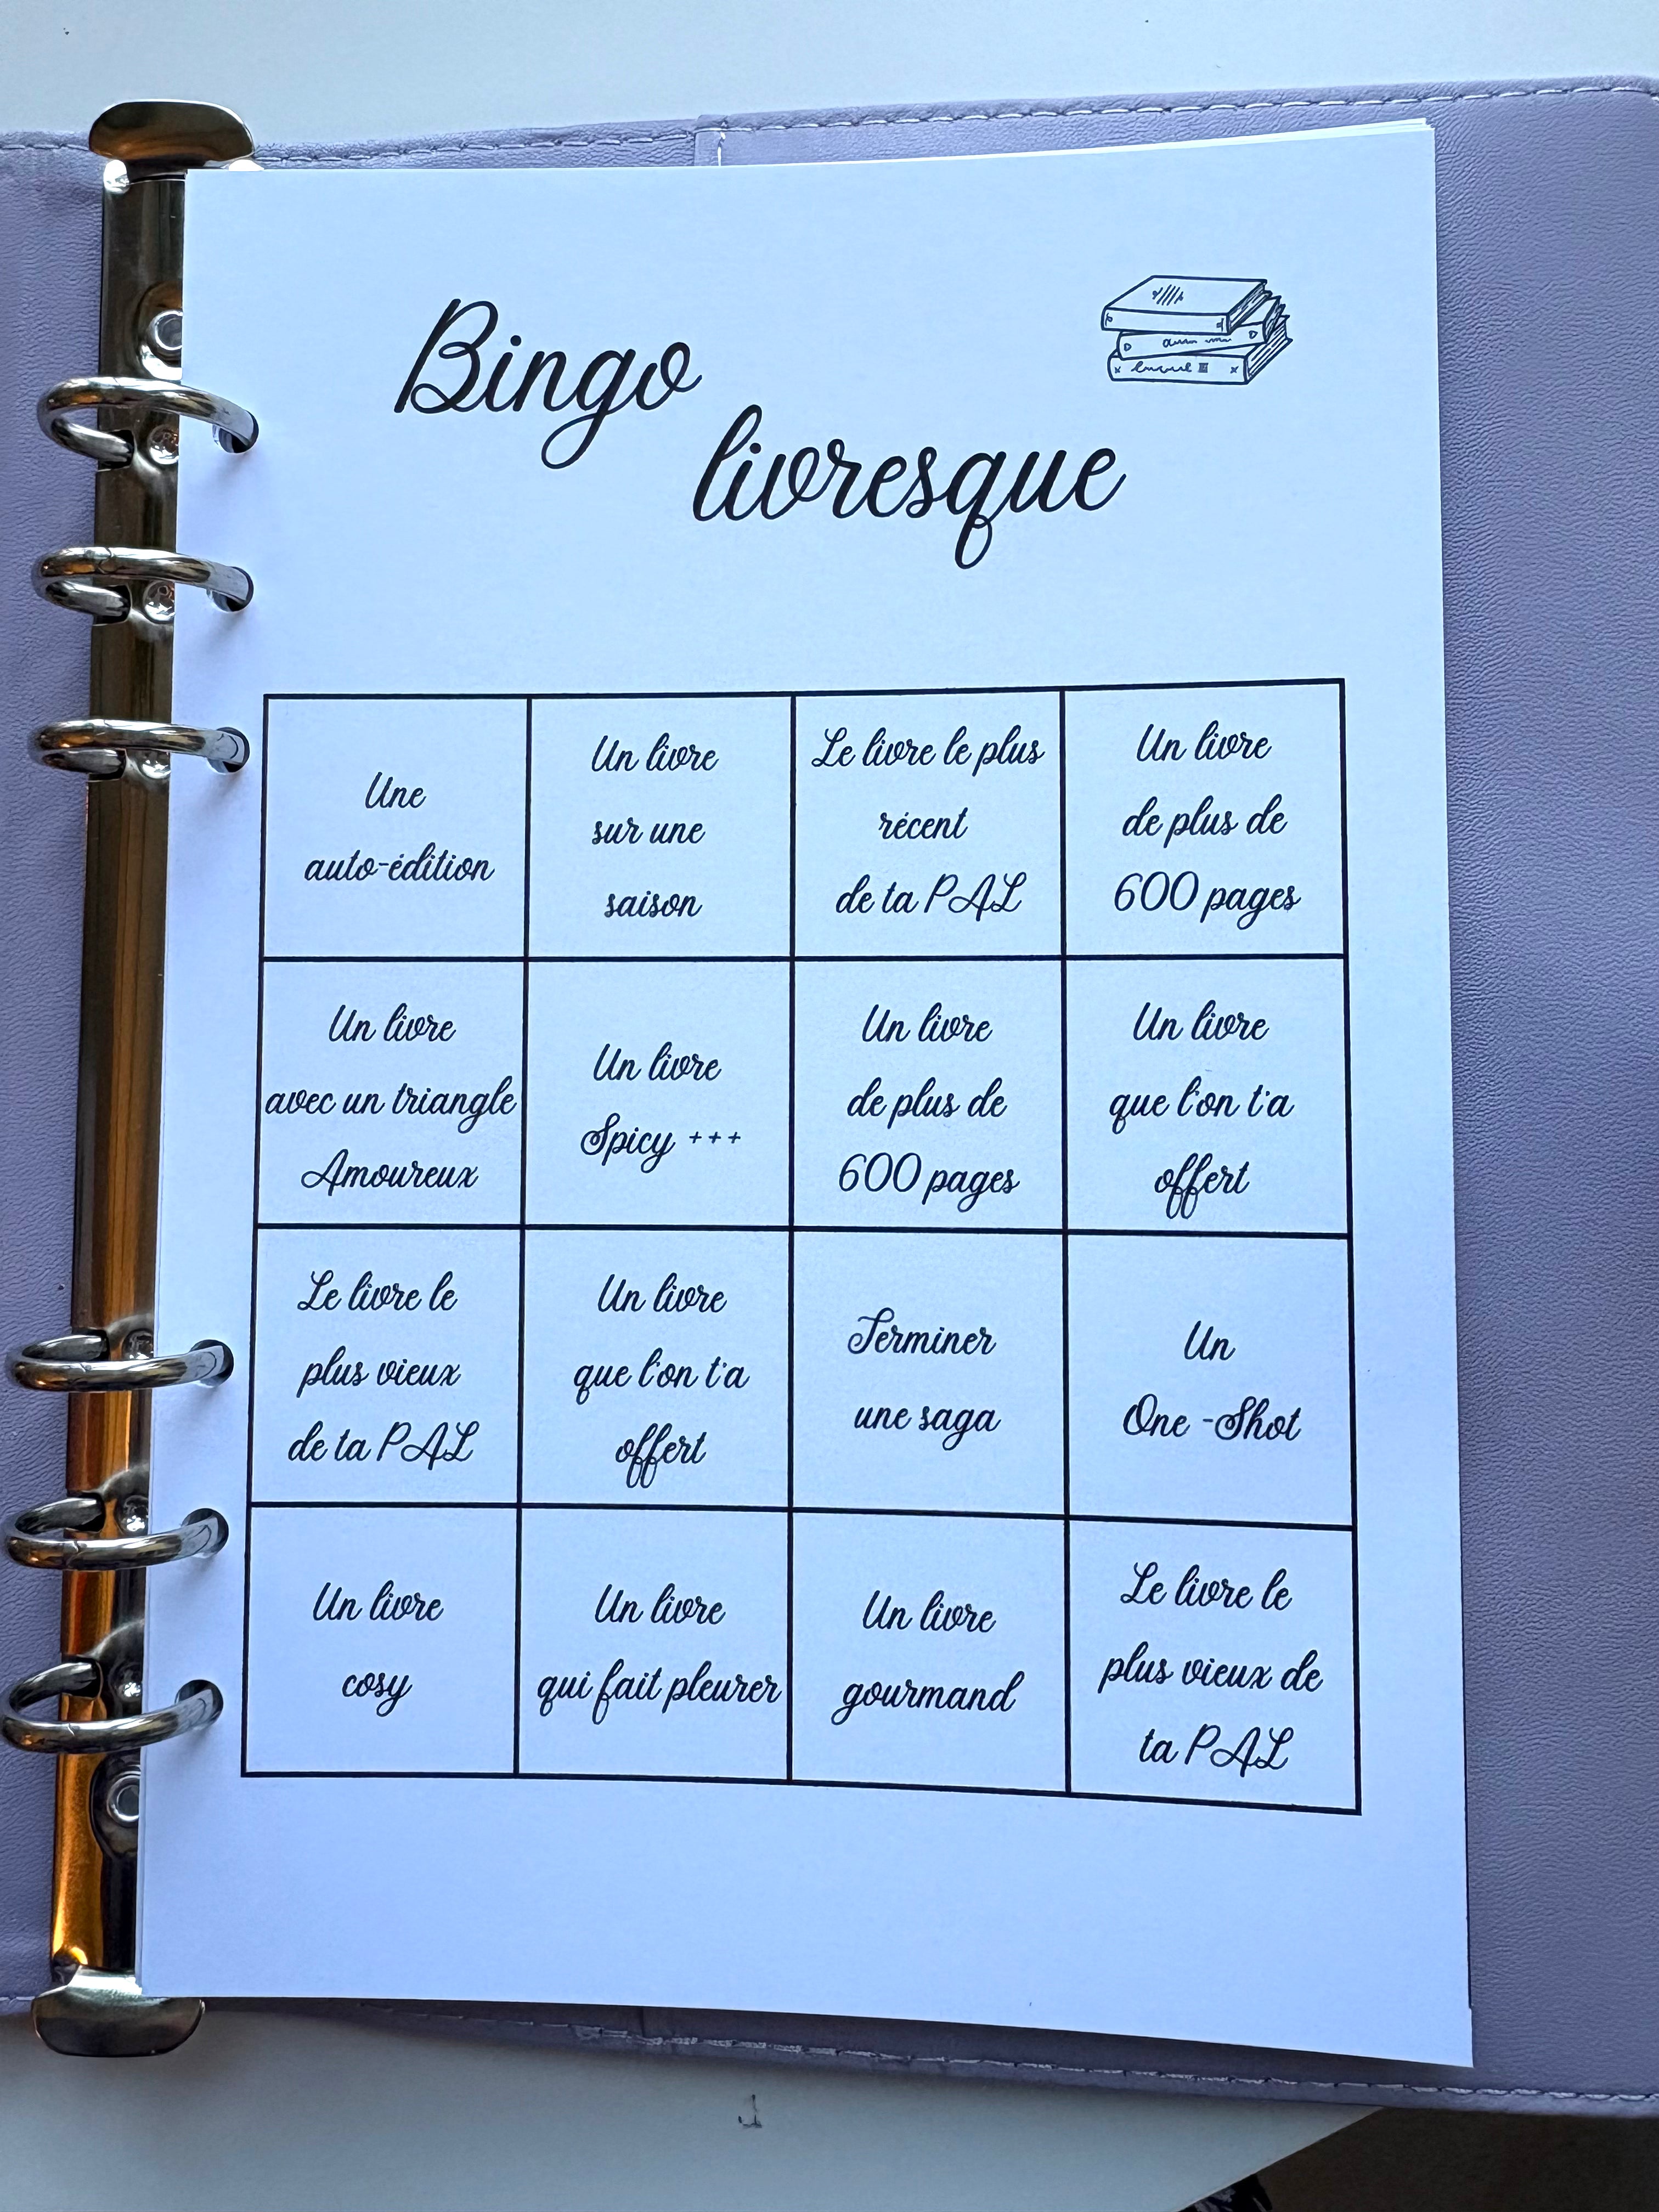 Bingo
livresque
Une
auto-édition
Un livre
sur une
saison
Le livre le plus
récent
de ta PAL
Un livre
de plus de
600 pages
Un livre
avec un triangle
Amoureux
Un livre
Spicy +++
Un livre
de plus de
600 pages
Un livre
que l'on t'a
offert
Le livre le
plus vieux
de ta PAL
Un livre
que l'on t'a
offert
Terminer
une saga
Un
One -Shot
Un livre
cosy
Un livre
qui fait pleurer
Un livre
gourmand
Le livre le
plus vieux de
ta PAL